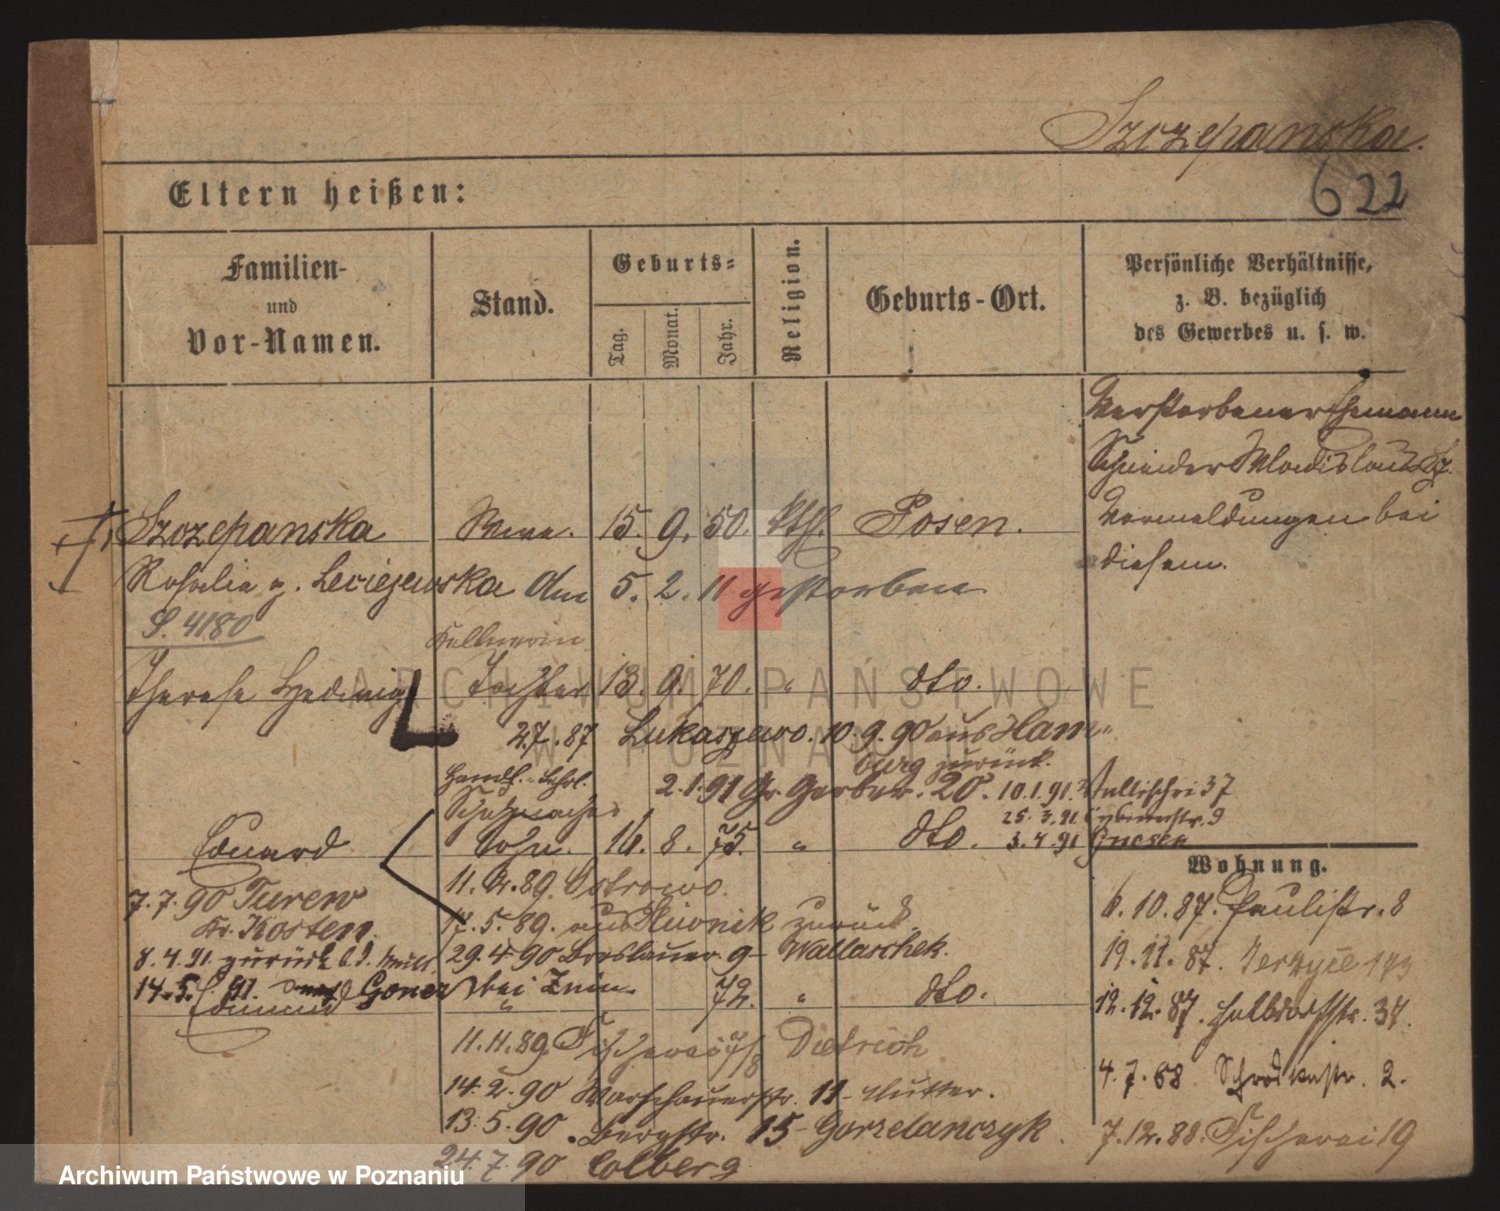 Szczepanska.
622
Eltern heißen:
Familien-
und
Vor-Namen.
Stand.
Geburts-
Tag.
Monat.
Jahr.
Religion.
Geburts-Ort.
Persönliche Verhältnisse,
z. B. bezüglich
des Gewerbes u. s. w.
Verstorbener Ehemann
Schneider Wladislaus Sz.
Vermeldungen bei
diesem.
Szczepanska Wwe. 15. 9. 50. kth. Posen.
Rosalie g. Leciejewska am 5. 2. 11 gestorben
S. 4180
Kellnerin
Therese Hedwig Tochter 13. 9. 70. " dto.
27.87 Lukaszewo. 10.9.90 aus Ham-
burg zurück.
Handl. Lehrl. 2.1.91 Gr. Gerber. 20. 10.1.91. 37
Schuhmacher 25.3.91
Eduard Sohn. 16. 8. 75. " dto. 3.4.91 Gnesen
Wohnung.
7.7.90 Turew
Kr. Kosten.
8.4.91. zurück
14.5.91. Gonez bei Znin
Edmund " 72. " dto.
89. Ostrowo.
17.5.89. aus zurück
29.4.90 Breslauer. 9 Wallaschek.
11.11.89. Fischerei 7/8 Dietrich
14.2.90 Warschauerstr. 11- Mutter.
13.5.90. Bergstr. 15- Gorzelanczyk.
24.7.90 Colberg
6.10.87. Paulistr. 8
19.11.87. Jerzyce 173
12.12.87. Halbdorfstr. 37.
4.7.88 Schrodkastr. 2.
7.12.88. Fischerei 19
ARCHIWUM PAŃSTWOWE
W POZNANIU
Archiwum Państwowe w Poznaniu